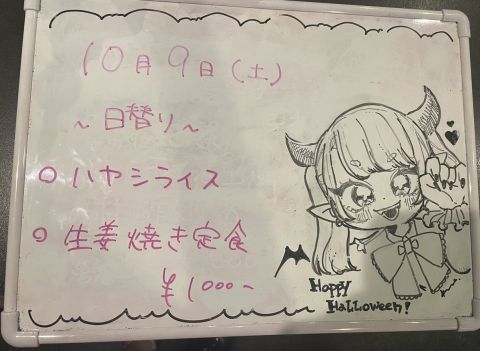 10月9日(土)
～日替り～
○ハヤシライス
○生姜焼き定食
¥1000～
Happy
Halloween!